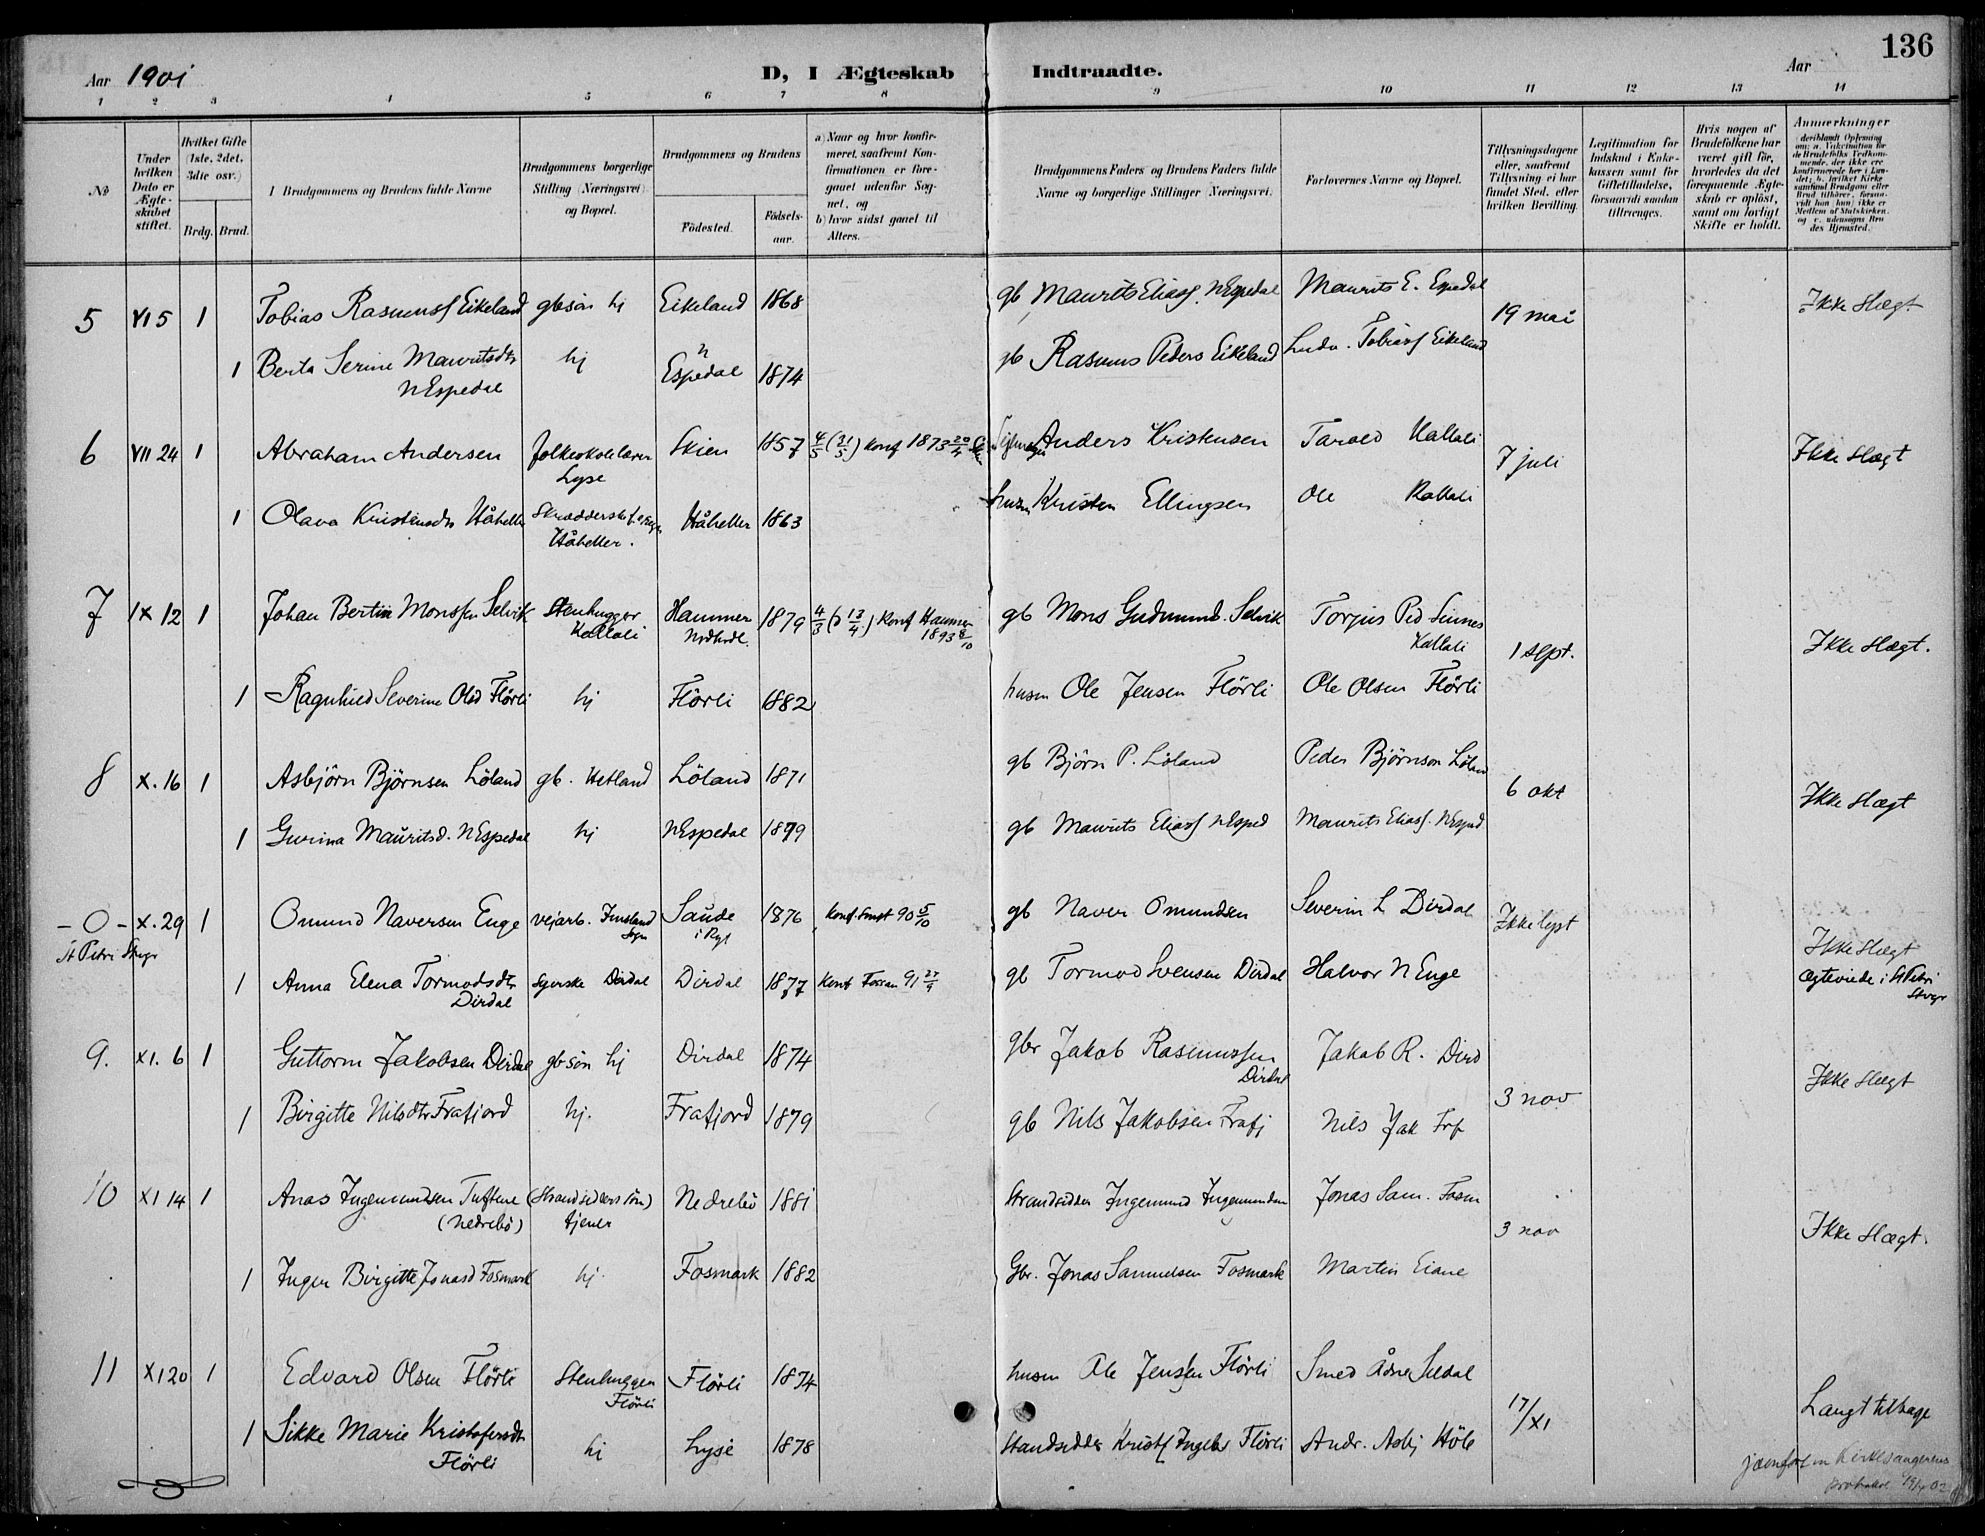 136
Aar 1901 D, I Ægteskab Indtraadte. Aar
1 2 3 4 5 6 7 8 9 10 11 12 13 14
No
Under hvilken Dato er Ægteskabet stiftet.
Hvilket Gifte (1ste, 2det, 3die osv.)
Brdg. Brud.
Brudgommens og Brudens fulde Navne
Brudgommens borgerlige Stilling (Næringsvei) og Bopæl.
Brudgommens og Brudens
Födested. Födselsaar.
a) Naar og hvor konfirmeret, saafremt Konfirmationen er foregaaet udenfor Sognet, og
b) hvor sidst gaaet til Alters.
Brudgommens Faders og Brudens Faders fulde Navne og borgerlige Stillinger (Næringsvei).
Forlovernes Navne og Bopæl.
Tillysningsdagene eller, saafremt Tillysning ei har fundet Sted, efter hvilken Bevilling.
Legitimation for Indskud i Enkekassen samt for Giftetilladelse, forsaavidt saadan tiltrænges.
Hvis nogen af Brudefolkene har været gift för, hvorledes da det foregaaende Ægteskab er oplöst, samt om lovligt Skifte er holdt.
Anmærkninger
5 VI 5 1 Tobias Rasmuss Eikeland gbsön hj Eikeland 1868 gb Maurits Eliass. NEspedal Maurits E. Espedal 19 mai Ikke Slægt
1 Berta Serine Mauritsdtr NEspedal hj N Espedal 1874 gb Rasmus Peders Eikeland Ludv. Tobiass Eikeland
6 VII 24 1 Abraham Andersen folkeskolelærer Lyse Skien 1857 4/5 (31/5) Konf 1873 20/4 Anders Kristensen Tarald Kallali 7 juli Ikke Slægt
1 Olava Kristensdtr Håheller Håheller. Håheller 1863 husm Kristen Ellingsen Ole Kallali
7 IX 12 1 Johan Bertin Monssen Selvik Stenhugger Kallali Hammer 1879 4/3 Konf Hammer 1893 8/10 gb Mons Gudmund. Selvik Torjus Ped Sinnes Kallali 1 sept. Ikke Slægt.
1 Ragnhild Severine Olsd Flörli hj Flörli 1882 husm Ole Jensen Flörli Ole Olsen Flörli
8 X. 16 1 Asbjörn Björnsen Löland gb. Hetland Löland 1871 gb Björn P. Löland Peder Björnson Löland 6 okt Ikke Slægt
1 Gurina Mauritsd. NEspedal hj NEspedal 1879 gb Maurits Eliass NEsped Maurits Eliass. NEsped
- 0 - X. 29 1 Omund Naversen Enge vejarb. Imsland Sogn Saude i Ryf 1876 Konf. 90 5/10 gb Naver Omundsen Severin L Dirdal Ikke lyst Ikke Slægt
St Petri Stvgr
1 Anna Elena Tormodsdtr Dirdal syerske Dirdal Dirdal 1877 Konf Fossan 91 27/9 gb Tormod Svensen Dirdal Halvor N Enge Ægteviede i St Petri Stvgr
9. XI. 6 1 Guttorm Jakobsen Dirdal gbsön hj Dirdal 1874 gbr Jakob Rasmussen Dirdal Jakob R. Dird 3 nov Ikke Slægt
1 Birgitte Nilsdtr Frafjord hj. Frafjord 1879 gb Nils Jakobsen Frafj Nils Jak Frf
10 XI 14 1 Anas Ingemundsen Tuftene (Nedrebö) (Strandsidders sön) tjener Nedrebö 1881 Strandsidder Ingemund Ingemundsen Jonas Sam. Fosm 3 nov Ikke Slægt.
1 Inger Birgitte Jonasd Fosmark hj. Fosmark 1882 Gbr. Jonas Samuelsen Fosmark Martin Eiane
11 XI 20 1 Edvard Olsen Flörli Stenhugger Flörli Flörli 1874 husm Ole Jenssen Flörli Smed Åsne Seldal 17/XI Langt tilbage
1 Sikke Marie Kristofersdtr Flörli hj Lyse 1878 Standsidder Kristf Ingebr Flörli Andr. Asbj Höle
jævnfört m Kirkesangerens Protokol 19/4 02